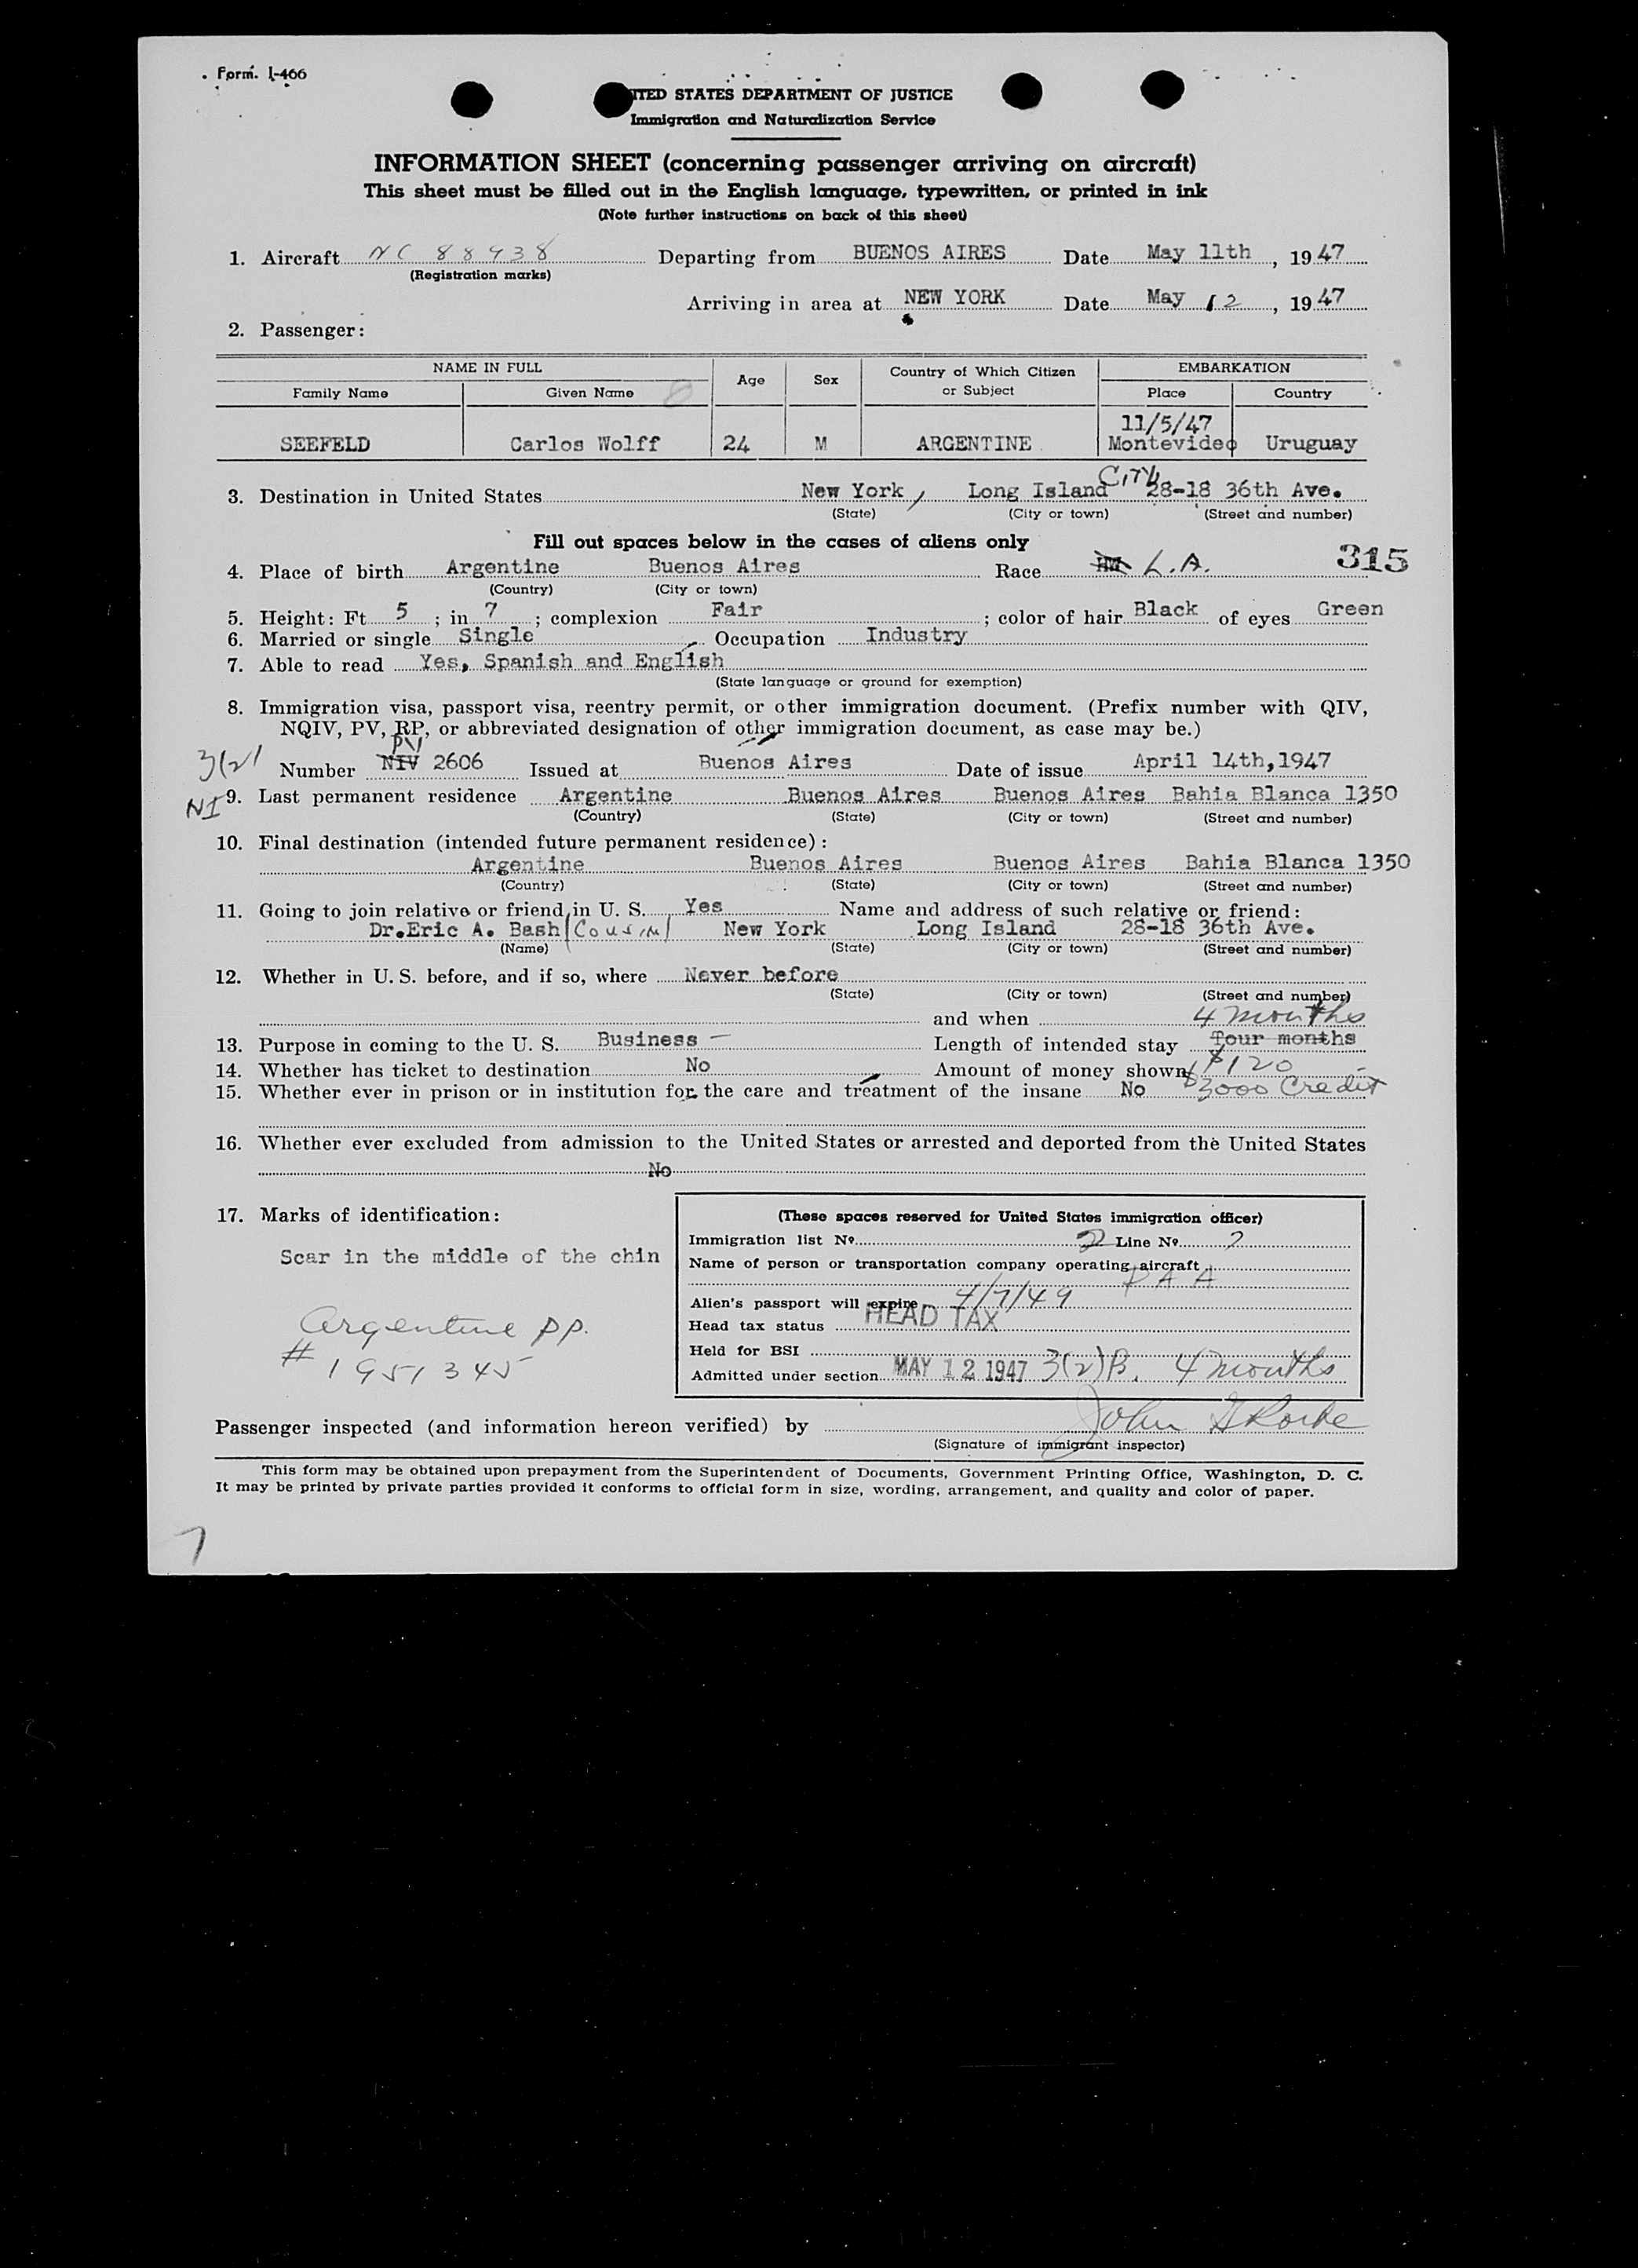 Form. I-466
ITED STATES DEPARTMENT OF JUSTICE
Immigration and Naturalization Service
INFORMATION SHEET (concerning passenger arriving on aircraft)
This sheet must be filled out in the English language, typewritten, or printed in ink
(Note further instructions on back of this sheet)
1. Aircraft NC 88938 Departing from BUENOS AIRES Date May 11th, 1947
(Registration marks)
Arriving in area at NEW YORK Date May 12, 1947
2. Passenger:
NAME IN FULL Age Sex Country of Which Citizen or Subject EMBARKATION
Family Name Given Name Place Country
11/5/47
SEEFELD Carlos Wolff 24 M ARGENTINE Montevideo Uruguay
3. Destination in United States New York, Long Island City 28-18 36th Ave.
(State) (City or town) (Street and number)
Fill out spaces below in the cases of aliens only
315
4. Place of birth Argentine Buenos Aires Race L.A.
(Country) (City or town)
5. Height: Ft 5; in 7; complexion Fair; color of hair Black of eyes Green
6. Married or single Single Occupation Industry
7. Able to read Yes, Spanish and English
(State language or ground for exemption)
8. Immigration visa, passport visa, reentry permit, or other immigration document. (Prefix number with QIV,
NQIV, PV, RP, or abbreviated designation of other immigration document, as case may be.)
PV
3(2) Number NIV 2606 Issued at Buenos Aires Date of issue April 14th,1947
NI 9. Last permanent residence Argentine Buenos Aires Buenos Aires Bahia Blanca 1350
(Country) (State) (City or town) (Street and number)
10. Final destination (intended future permanent residence):
Argentine Buenos Aires Buenos Aires Bahia Blanca 1350
(Country) (State) (City or town) (Street and number)
11. Going to join relative or friend in U. S. Yes Name and address of such relative or friend:
Dr.Eric A. Bash (Cousin) New York Long Island 28-18 36th Ave.
(Name) (State) (City or town) (Street and number)
12. Whether in U. S. before, and if so, where Never before
(State) (City or town) (Street and number)
and when 4 months
13. Purpose in coming to the U. S. Business - Length of intended stay four months
14. Whether has ticket to destination No Amount of money shown $120
15. Whether ever in prison or in institution for the care and treatment of the insane No $3000 Credit
16. Whether ever excluded from admission to the United States or arrested and deported from the United States
No
17. Marks of identification:
Scar in the middle of the chin
Argentine pp.
# 1951345
(These spaces reserved for United States immigration officer)
Immigration list No 2 Line No 7
Name of person or transportation company operating aircraft
PAA
Alien's passport will expire 4/7/49
Head tax status HEAD TAX
Held for BSI
Admitted under section MAY 12 1947 3(2)B. 4 months
Passenger inspected (and information hereon verified) by John
(Signature of immigrant inspector)
This form may be obtained upon prepayment from the Superintendent of Documents, Government Printing Office, Washington, D. C.
It may be printed by private parties provided it conforms to official form in size, wording, arrangement, and quality and color of paper.
7